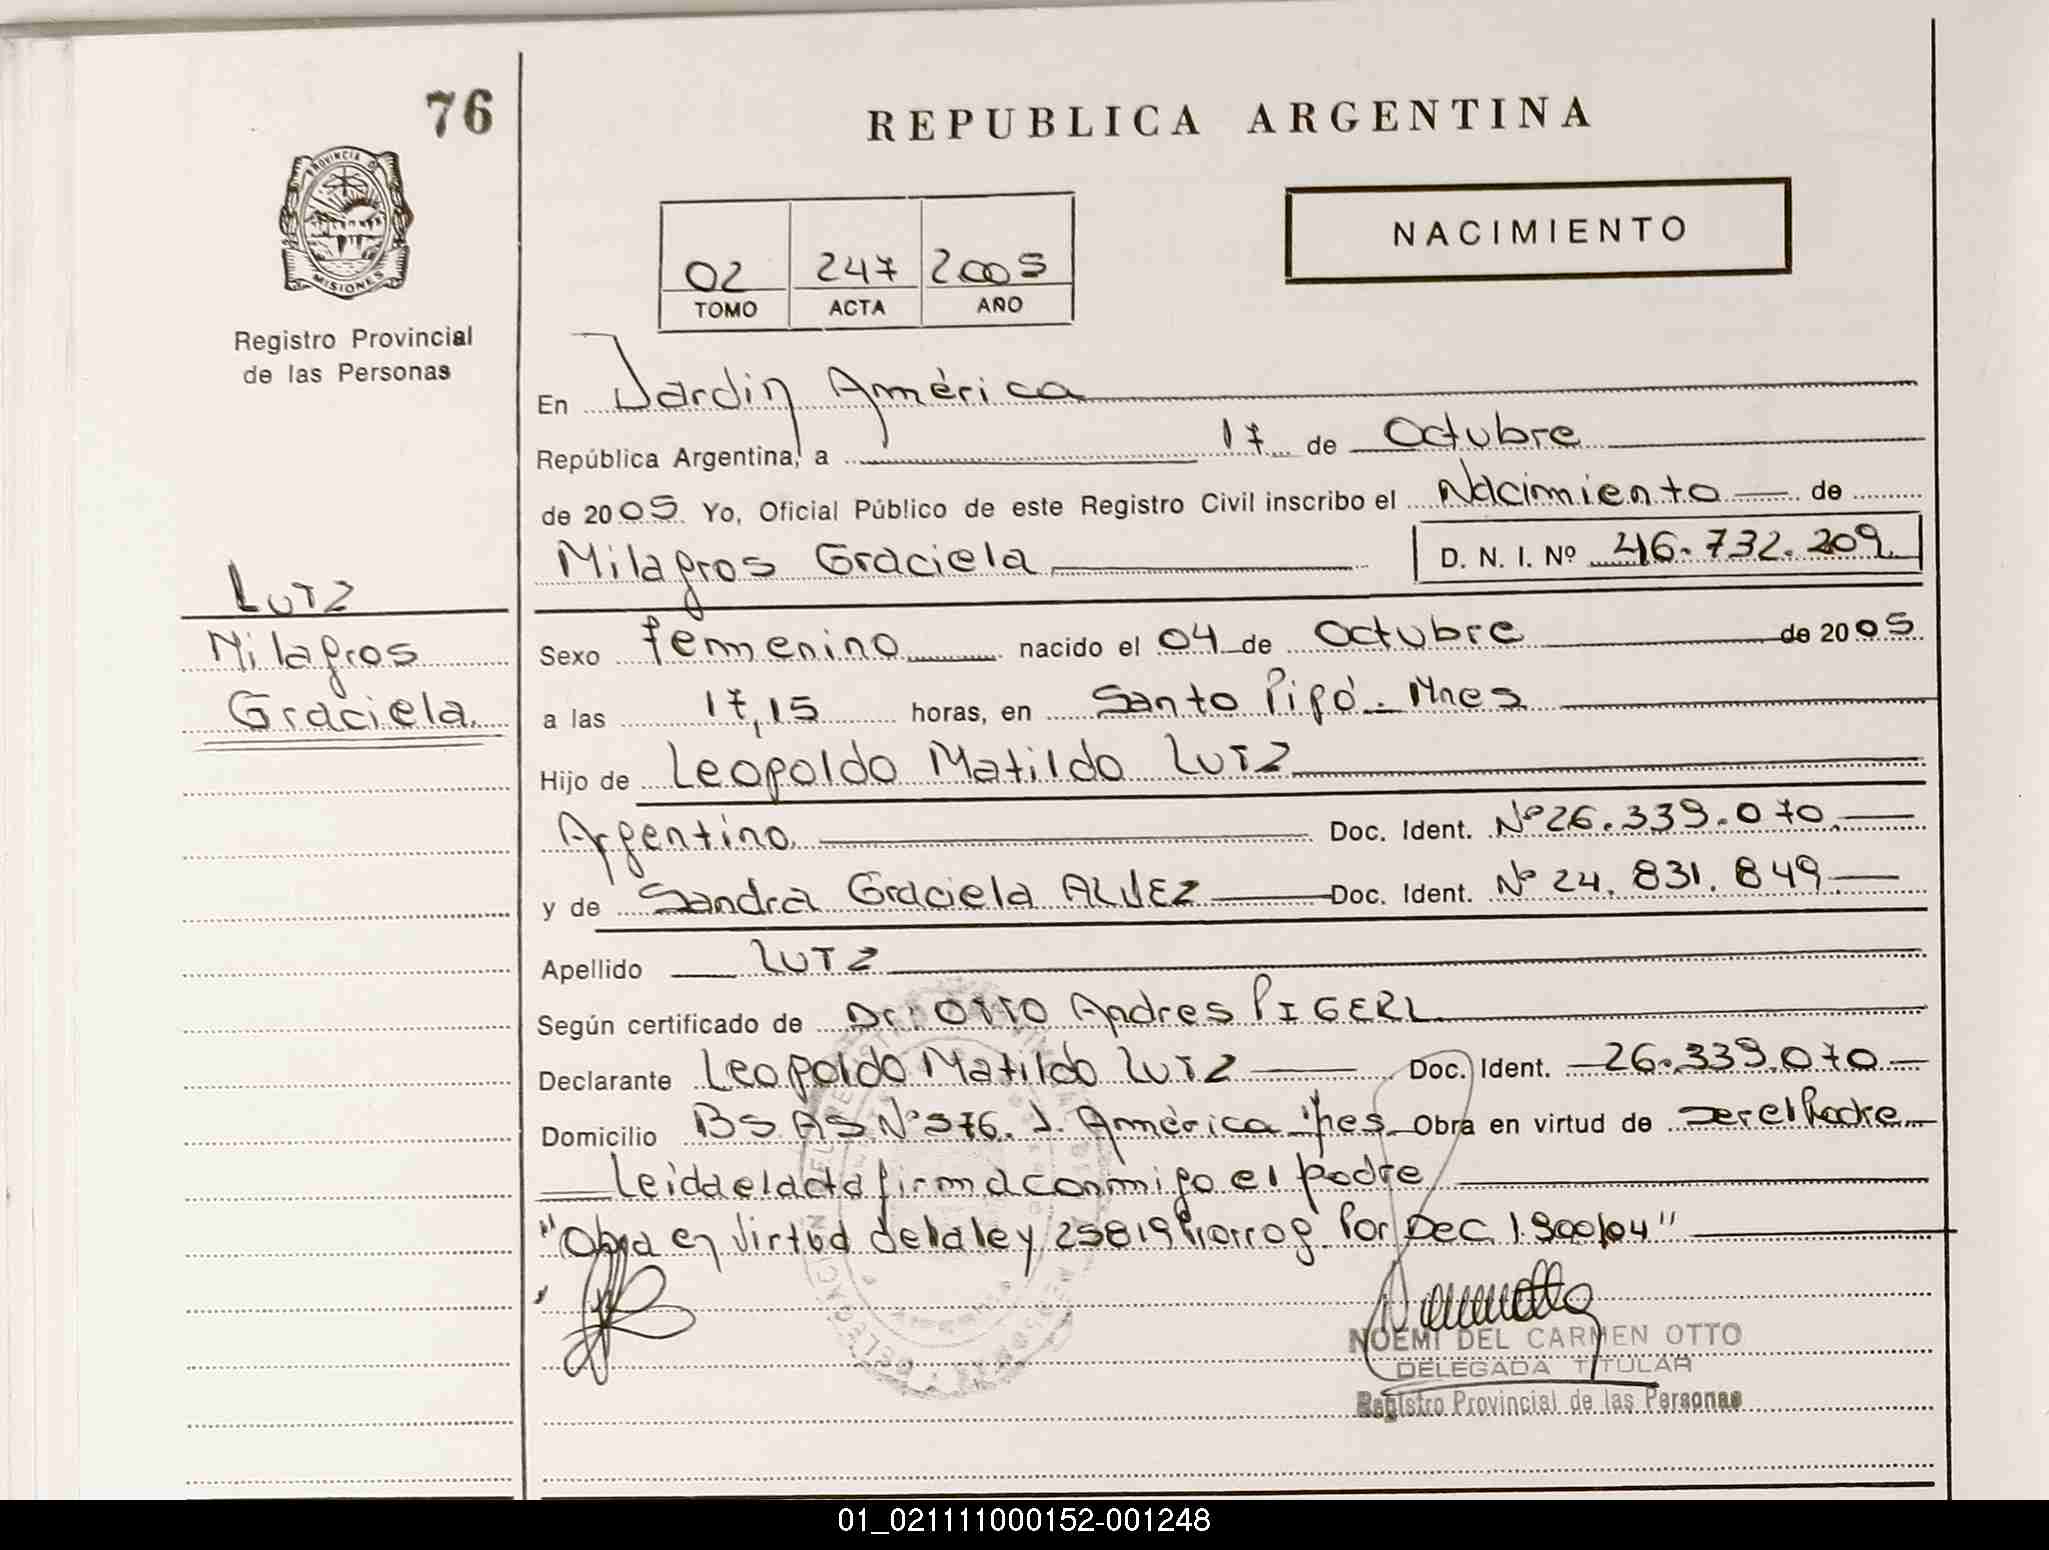 76
REPUBLICA ARGENTINA
PROVINCIA DE
MISIONES
Registro Provincial
de las Personas
NACIMIENTO
02 247 2005
TOMO ACTA AÑO
En Jardin América
República Argentina, a 17 de Octubre
de 2005 Yo, Oficial Público de este Registro Civil inscribo el Nacimiento de
Milagros Graciela D. N. I. Nº 46.732.209
LUTZ
Milagros
Graciela.
Sexo femenino nacido el 04 de Octubre de 2005
a las 17,15 horas, en Santo Pipó - Mnes
Hijo de Leopoldo Matildo LUTZ
Argentino Doc. Ident. Nº 26.339.070.
y de Sandra Graciela ALVEZ Doc. Ident. Nº 24.831.849
Apellido LUTZ
Según certificado de Dr: OTTO Andres PIGERL
Declarante Leopoldo Matildo LUTZ Doc. Ident. 26.339.070
Domicilio BS AS Nº 376. J. América Mnes Obra en virtud de ser el Padre
Leida el acta firma conmigo el padre
"Obra en virtud de la ley 25819 Prorrog. Por Dec. 1.900/04"
NOEMI DEL CARMEN OTTO
DELEGADA TITULAR
Registro Provincial de las Personas
01_021111000152-001248